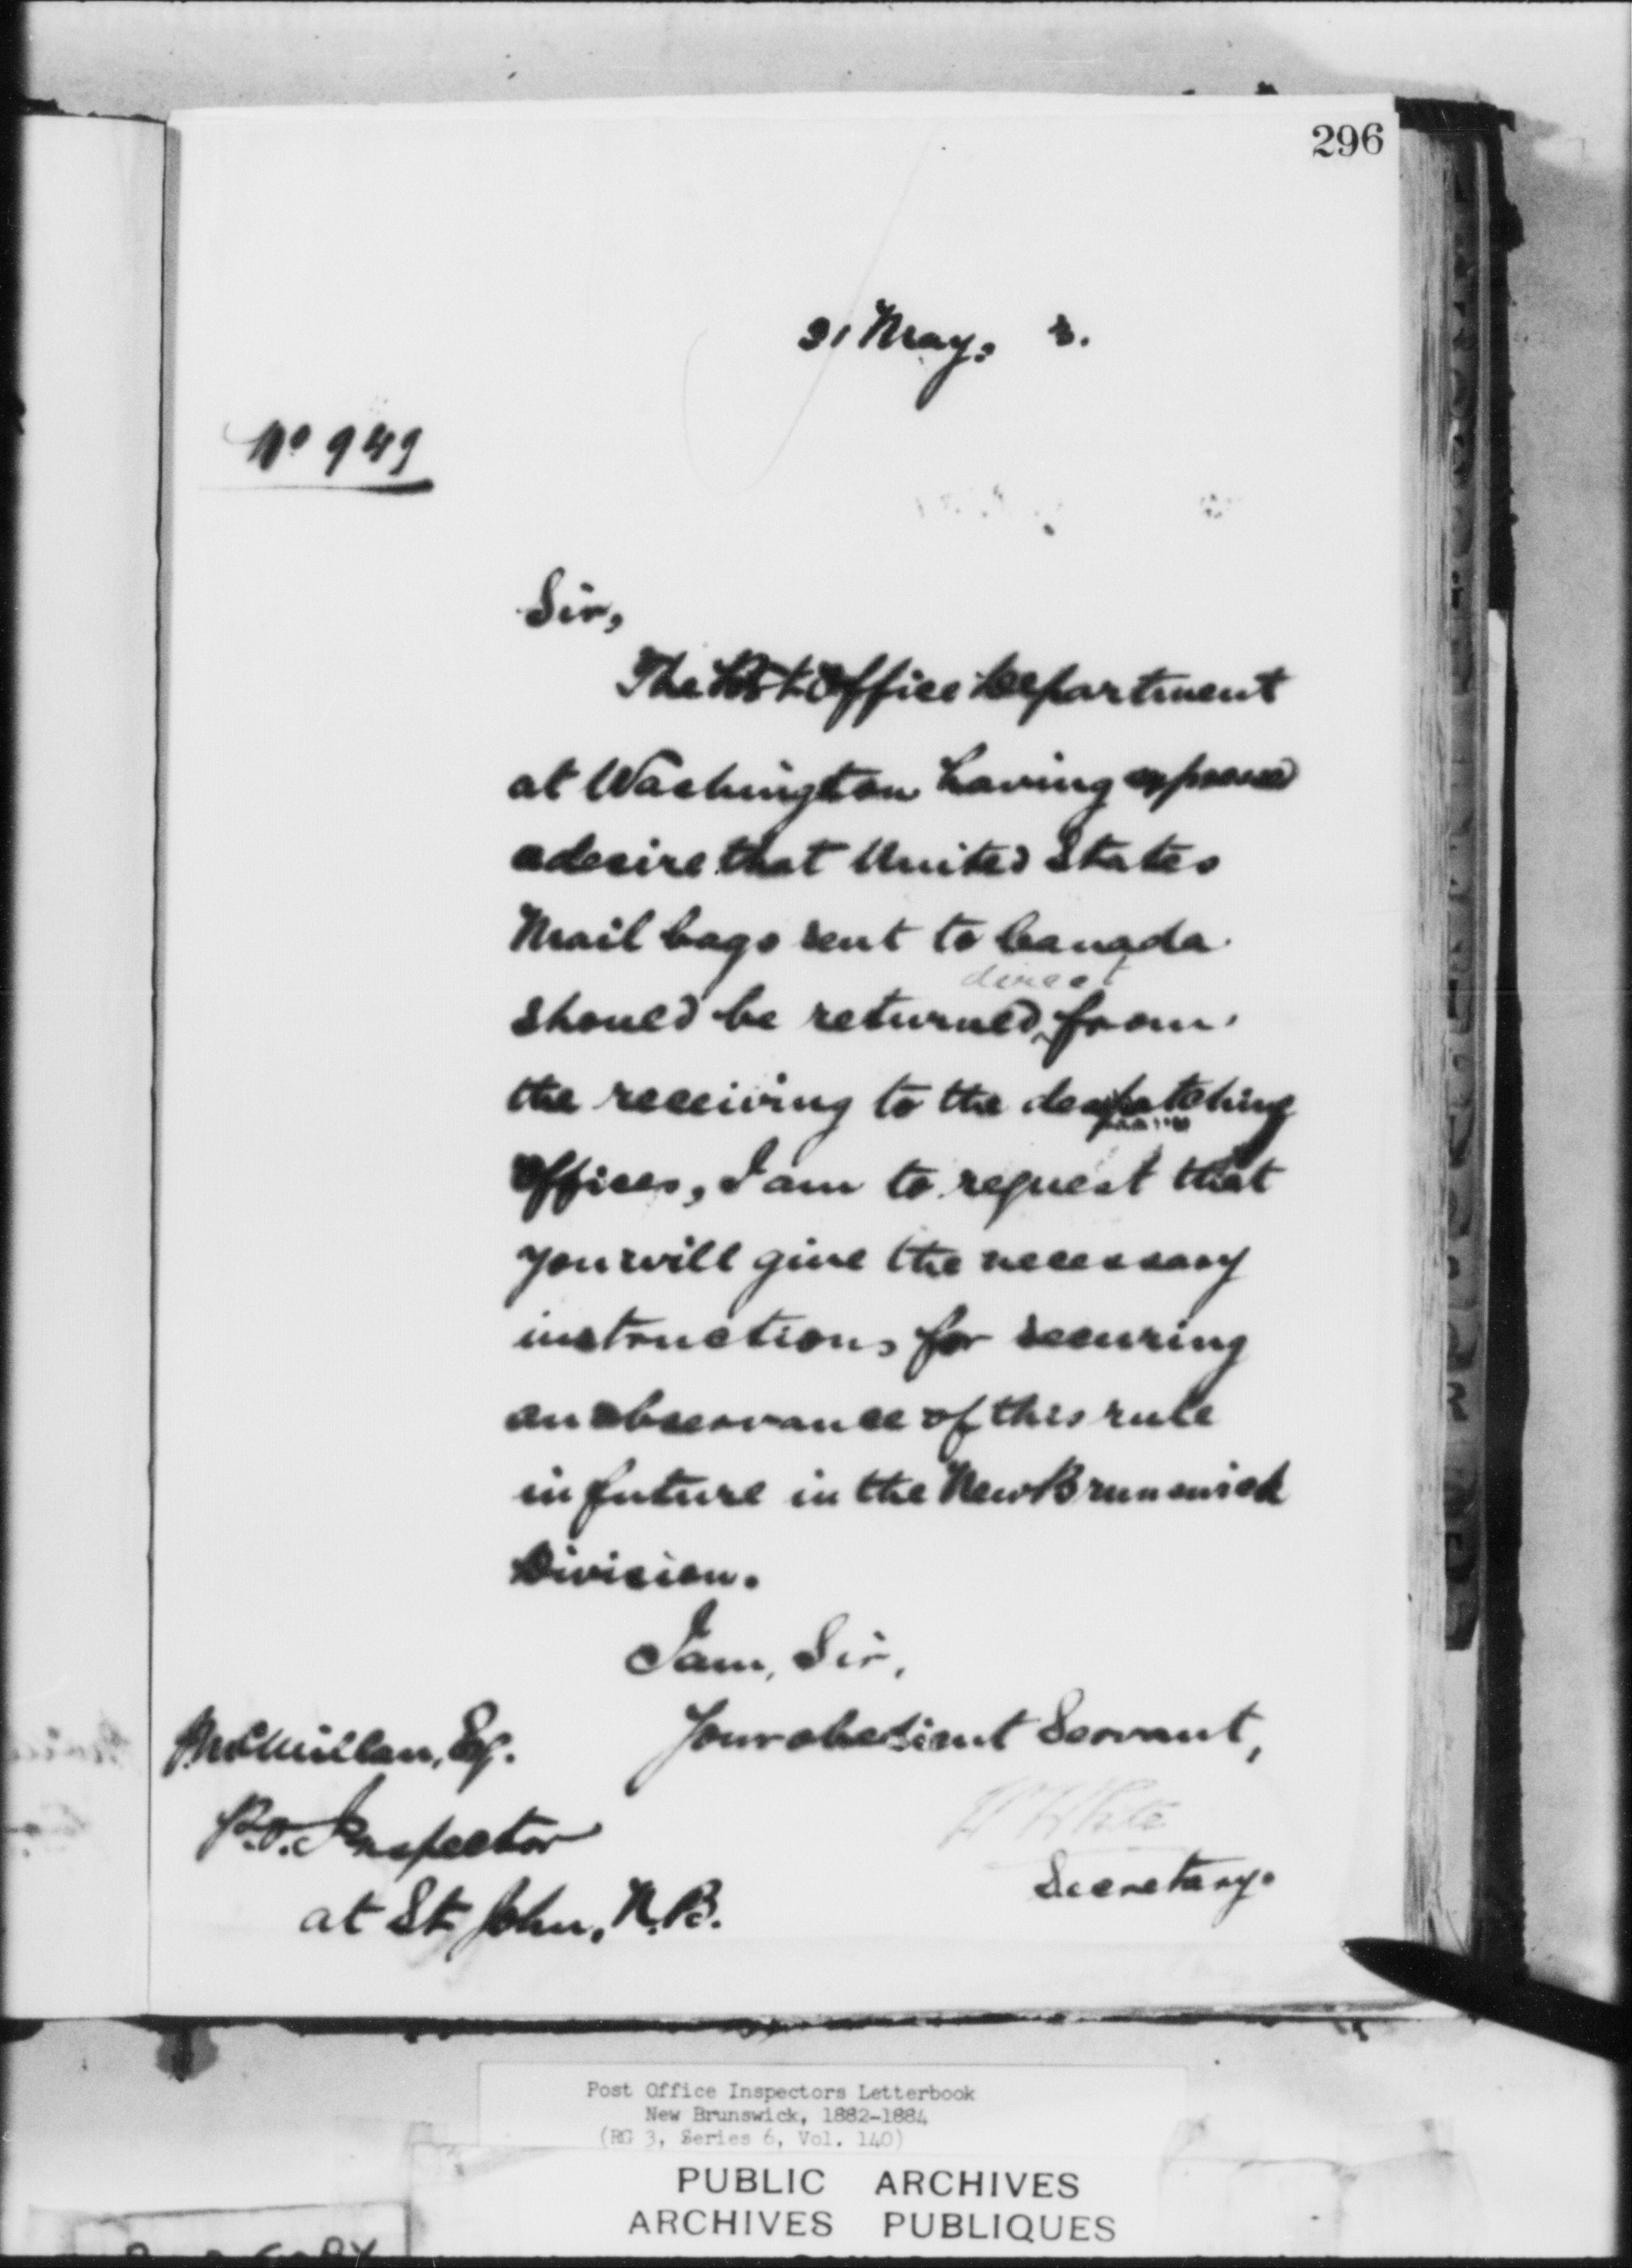 296
31 May, 3.
No 949
Sir,
The Post Office Department
at Washington having expressed
a desire that United States
Mail bags sent to Canada
direct
should be returned from
the receiving to the despatching
Offices, I am to request that
you will give the necessary
instructions for securing
an observance of this rule
in future in the New Brunswick
Division.
I am, Sir,
Your obedient Servant,
McMillan, Esq.
P.O. Inspector
W White
Secretary.
at St John, N.B.
Post Office Inspectors Letterbook
New Brunswick, 1882-1884
(RG 3, Series 6, Vol. 140)
PUBLIC ARCHIVES
ARCHIVES PUBLIQUES
COPY